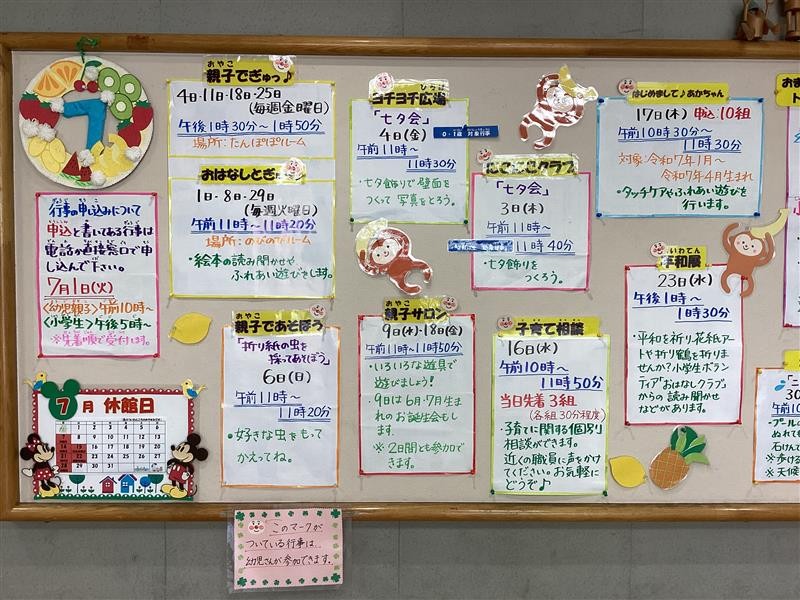 7
行事の申し込みについて
申込と書いてある行事は
電話か直接窓口で申
し込んで下さい。
7月1日(火)
〈幼児親子〉午前10時〜
〈小学生〉午後5時〜
※先着順で受付います。
7月 休館日
おやこ
親子でぎゅっ♪
4日・11日・18日・25日
(毎週金曜日)
午後1時30分〜1時50分
場所:たんぽぽルーム
おはなしとぎ
1日・8日・29日
(毎週火曜日)
午前11時〜11時20分
場所:のびのびルーム
・絵本の読み聞かせや
ふれあい遊びをします。
おやこ
親子であそぼう
「折り紙の虫を
採ってあそぼう」
6日(日)
午前11時〜
11時20分
・好きな虫をもって
かえってね。
このマークが
ついている行事は
幼児さんが参加できます。
ひろば
ヨチヨチ広場
「七夕会」
0・1歳 対象行事
4日(金)
午前11時〜
11時30分
・七夕飾りで壁面を
つくって写真をとろう。
おやこ
親子サロン
9日(水)・18日(金)
午前11時〜11時50分
・いろいろな遊具で
遊びましょう!
・9日は6月・7月生ま
れのお誕生会もし
ます。
※2日間とも参加で
きます。
にこにこクラブ
「七夕会」
3日(木)
午前11時〜
11時40分
・七夕飾りを
つくろう。
子育て相談
16日(水)
午前10時〜
11時50分
当日先着3組
(各組30分程度)
・子育てに関する個別
相談ができます。
近くの職員に声をかけ
てください。お気軽に
どうぞ♪
はじめまして♪あかちゃん
17日(木) 申込:10組
午前10時30分〜
11時30分
対象:令和7年1月〜
令和7年4月生まれ
・タッチケアやふれあい遊びを
行います。
平和展
23日(水)
午後1時〜
1時30分
・平和を祈り花紙アー
トや折り鶴を折りま
せんか?小学生ボラン
ティア「おはなしクラブ」
からの読み聞かせ
などがあります。